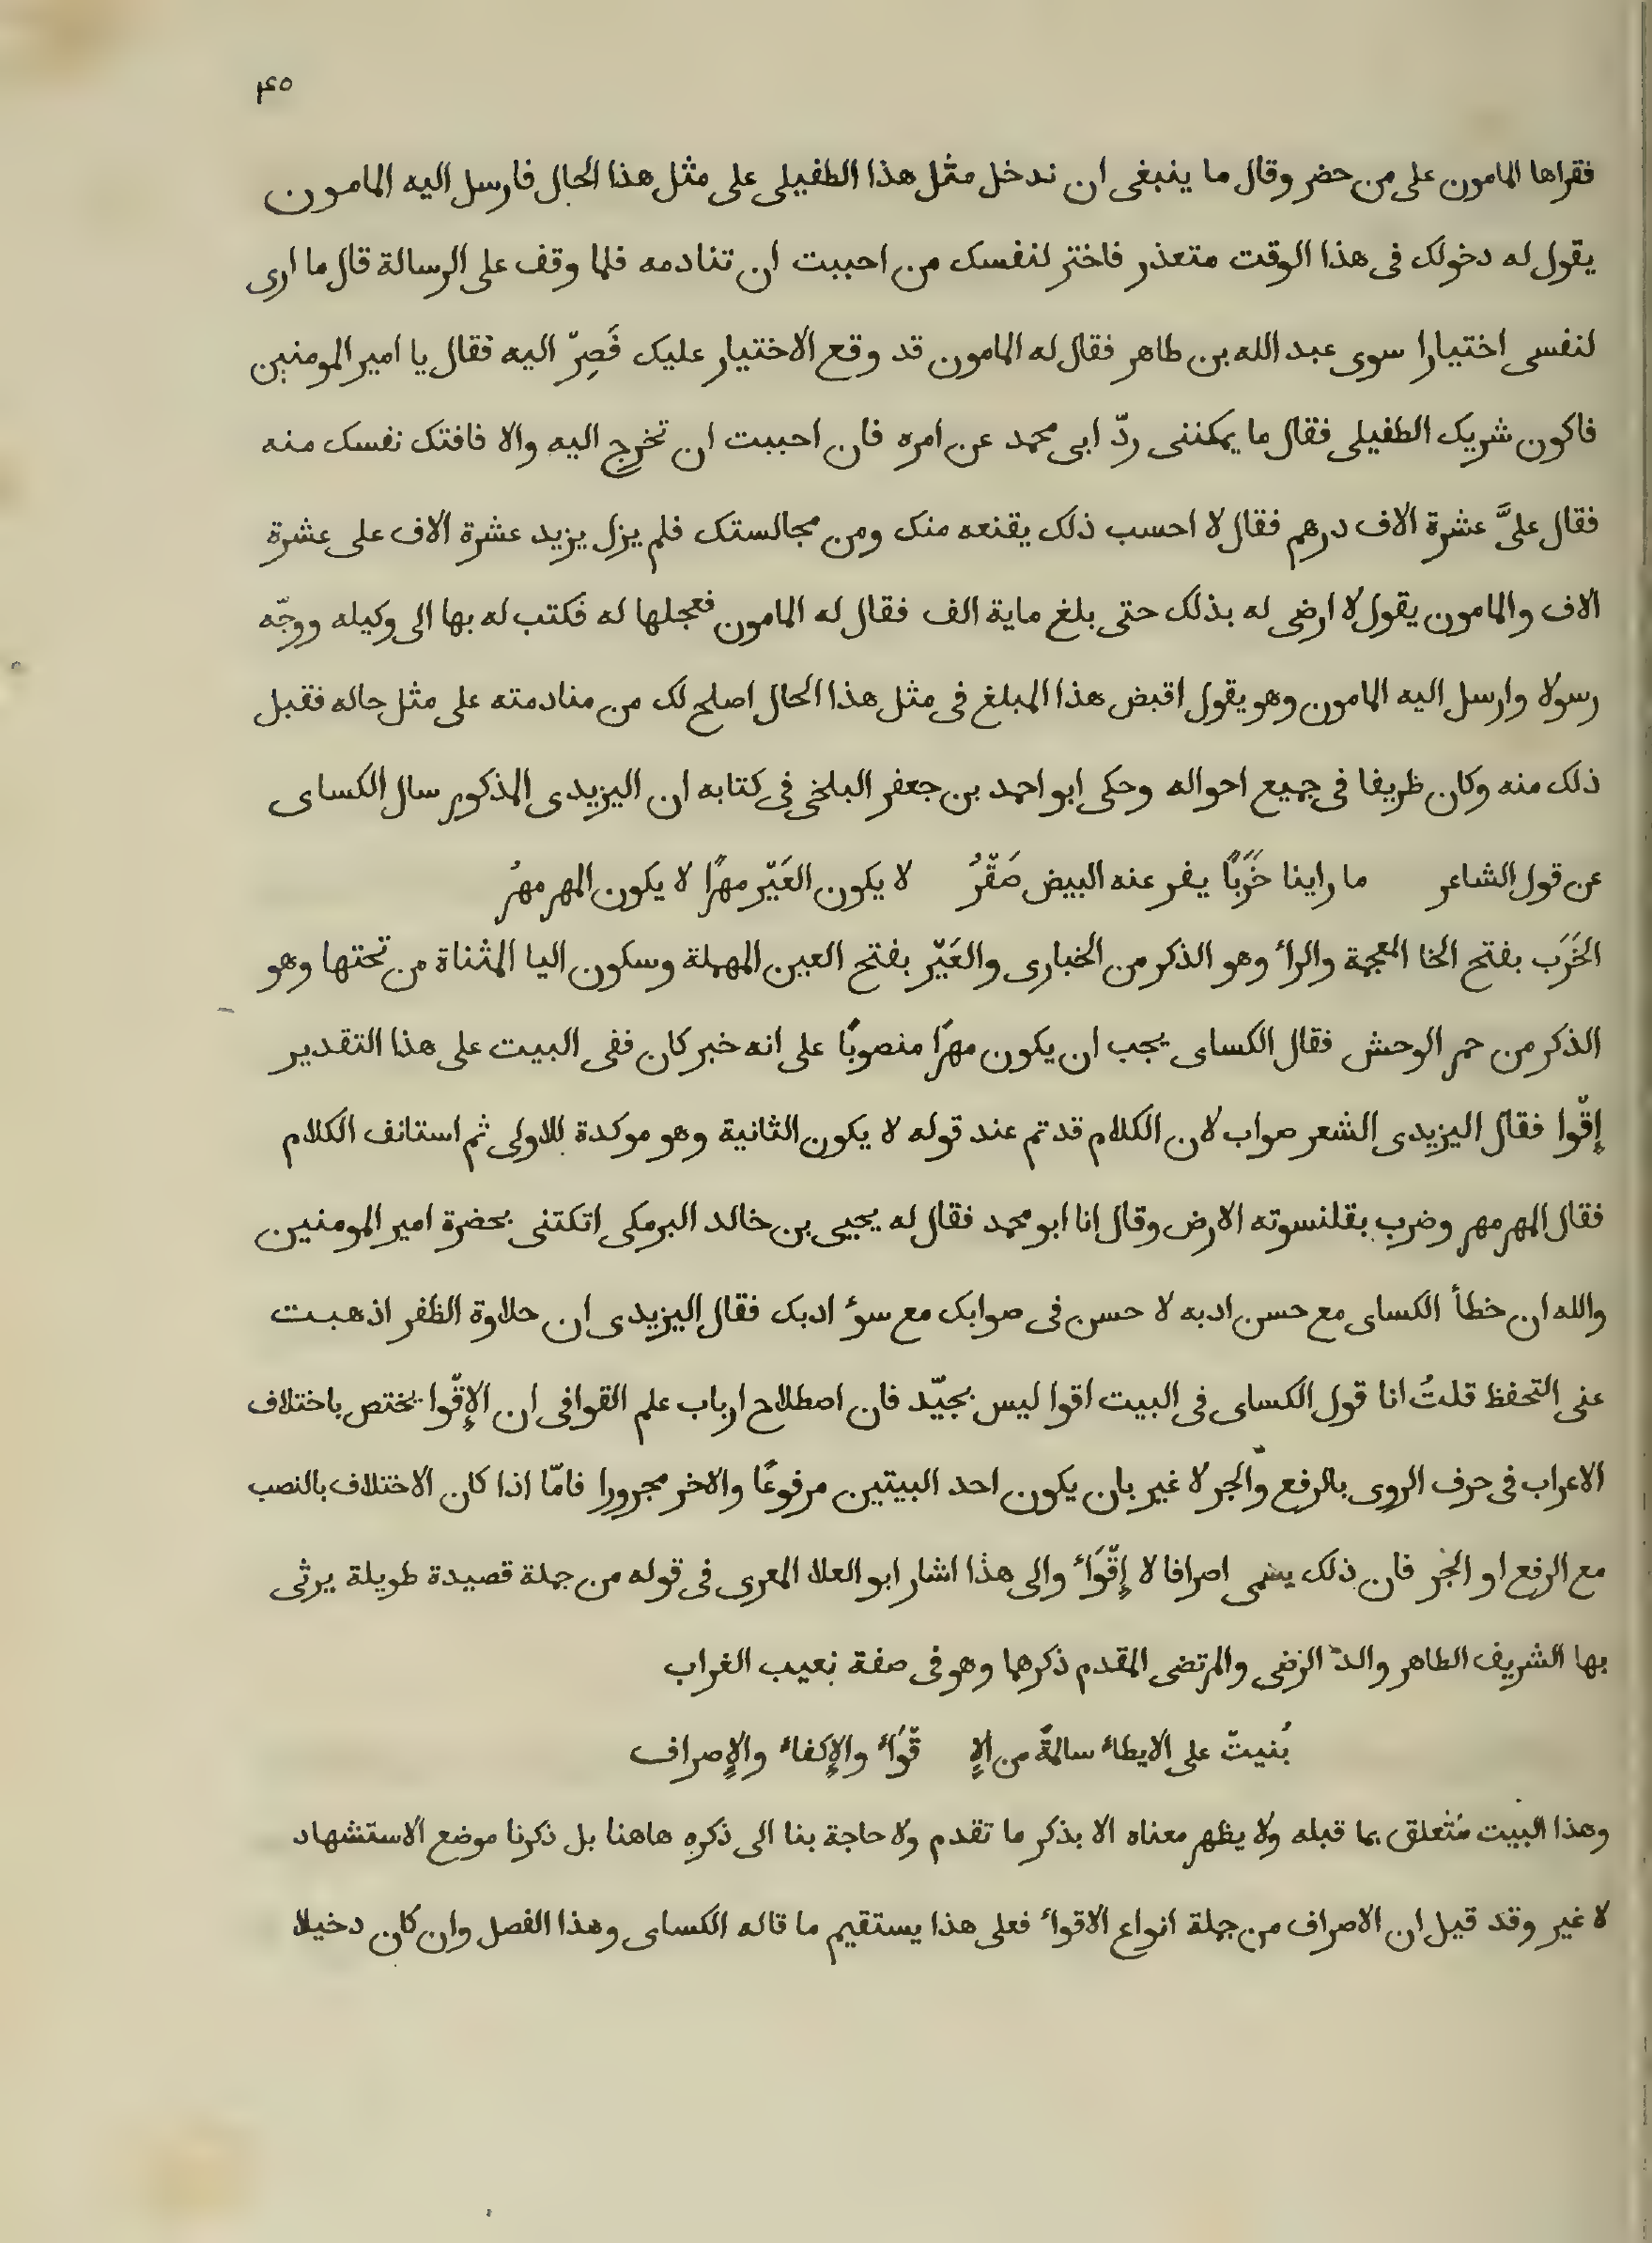 ٣٤٥
فقراها المامون على من حضر وقال ما ينبغى ان ندخل مثل هذا الطفيلى على مثل هذا الحال فارسل اليه المامون
يقول له دخولك فى هذا الوقت متعذر فاختر لنفسك من احببت ان تنادمه فلما وقف على الرسالة قال ما ارى
لنفسى اختيارا سوى عبد الله بن طاهر فقال له المامون قد وقع الاختيار عليك فَصِرْ اليه فقال يا امير المومنين
فاكون شريك الطفيلى فقال ما يمكننى ردّ ابى محمد عن امره فان احببت ان تخرج اليه والا فافتك نفسك منه
فقال علىَّ عشرة الاف درهم فقال لا احسب ذلك يقنعه منك ومن مجالستك فلم يزل يزيد عشرة الاف على عشرة
الاف والمامون يقول لا ارضى له بذلك حتى بلغ ماية الف فقال له المامون فعجلها له فكتب له بها الى وكيله ووجّه
رسولا وارسل اليه المامون وهو يقول اقبض هذا المبلغ فى مثل هذا الحال اصلح لك من منادمته على مثل حاله فقبل
ذلك منه وكان ظريفا فى جميع احواله وحكى ابو احمد بن جعفر البلخى فى كتابه ان اليزيدى المذكور سال الكساى
عن قول الشاعر ما راينا خَرَبًا يفر عنه البيض صَقْرُ لا يكون العَيْر مهرًا لا يكون المهر مهرُ
الخَرَب بفتح الخا المعجمة والراء وهو الذكر من الخبارى والعَيْر بفتح العين المهملة وسكون اليا المثناة من تحتها وهو
الذكر من حمر الوحش فقال الكساى يجب ان يكون مهرًا منصوبًا على انه خبر كان ففى البيت على هذا التقدير
إِقْوا فقال اليزيدى الشعر صواب لان الكلام قد تم عند قوله لا يكون الثانية وهو موكدة للاولى ثم استانف الكلام
فقال المهر مهر وضرب بقلنسوته الارض وقال انا ابو محمد فقال له يحيى بن خالد البرمكى اتكتنى بحضرة امير المومنين
والله ان خطأ الكساى مع حسن ادبه لا حسن فى صوابك مع سوء ادبك فقال اليزيدى ان حلاوة الظفر اذهبت
عنى التحفظ قلتُ انا قول الكساى فى البيت اقوا ليس بجيّد فان اصطلاح ارباب علم القوافى ان الإِقْوا يختص باختلاف
الاعراب فى حرف الروى بالرفع والجر لا غير بان يكون احد البيتين مرفوعًا والاخر مجرورا فامّا اذا كان الاختلاف بالنصب
مع الرفع او الجر فان ذلك يسمى اصرافا لا إِقْوَاء والى هذا اشار ابو العلا المعرى فى قوله من جملة قصيدة طويلة يرثى
بها الشريف الطاهر والد الرضى والمرتضى المقدم ذكرهما وهو فى صفة نعيب الغراب
بُنيتْ على الايطاء سالمةً من الإِ قْوَاء والإِكفاء والإِصراف
وهذا البيت مُتعلق بما قبله ولا يظهر معناه الا بذكر ما تقدم ولا حاجة بنا الى ذكره هاهنا بل ذكرنا موضع الاستشهاد
لا غير وقد قيل ان الاصراف من جملة انواع الاقواء فعلى هذا يستقيم ما قاله الكساى وهذا الفصل وان كان دخيلا